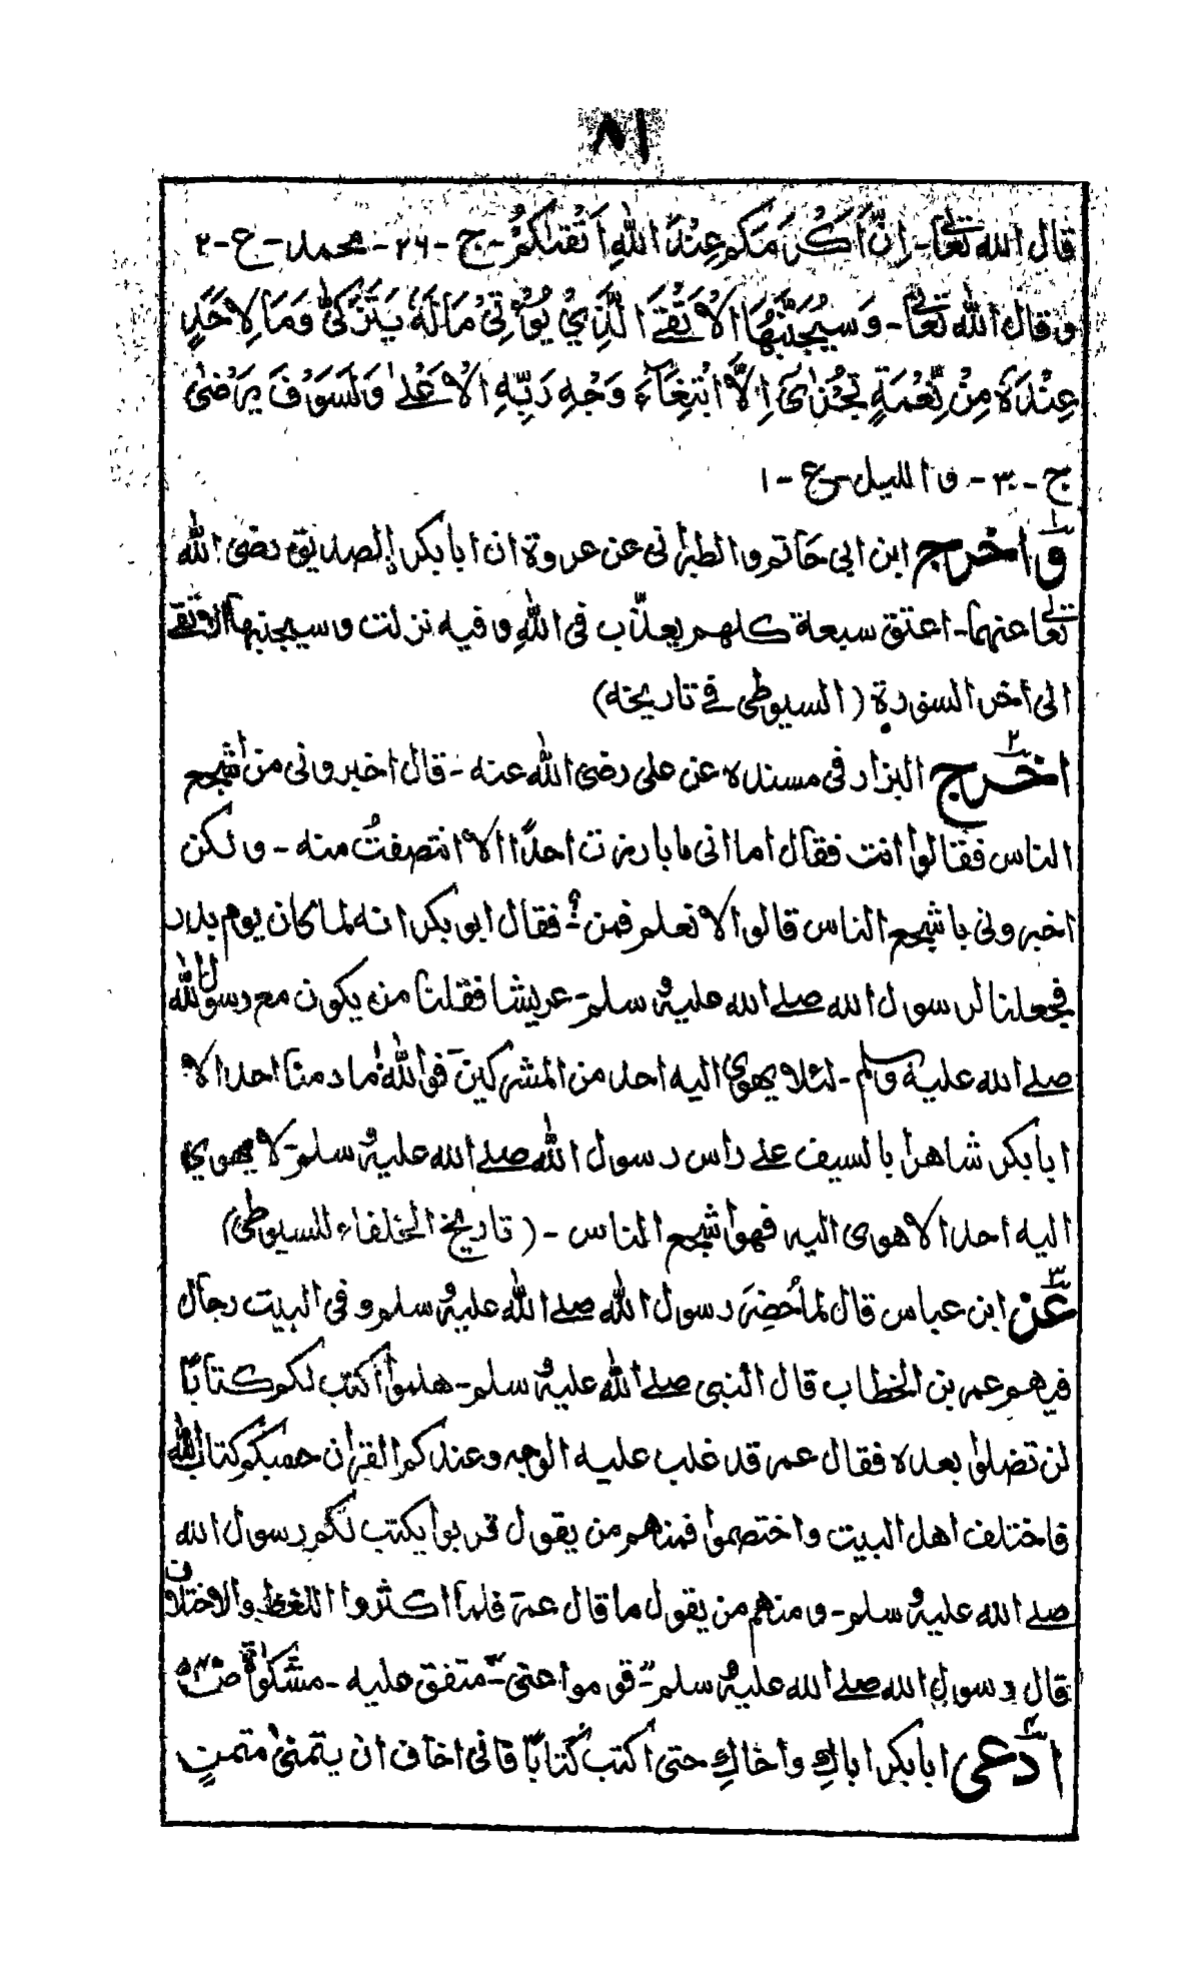 ٨١
قال الله تعالىٰ - اِنَّ اَكْرَمَكُم عِنْدَ اللهِ اَتْقىٰكُمْ - ج - ٢٦ - محمد - ع - ٢
و قال الله تعالىٰ - وَسَيُجَنَّبُهَا الْاَتْقَے الَّذِيْ يُوْتِيْ مَالَهٗ يَتَزَكّٰى وَمَا لِاَحَدٍ
عِنْدَهٗ مِنْ نِّعْمَةٍ تُجْزٰى اِلَّا ابْتِغَآءَ وَجْهِ رَبِّهِ الْاَعْلےٰ وَلَسَوْفَ يَرْضىٰ
ج - ٣٠ - و الليل - ع - ١
١ واخرج ابن ابى حَاتم و الطبرانى عن عروة ان ابا بكر الصديق رضى الله
تعالىٰ عنهما - اعتق سبعة كلهم يعذّب فى اللهِ و فيه نزلت و سيجنبها الاتقے
الى اٰخر السورة (السيوطى فے تاريخه)
٢ اخرج البزار فى مسنده عن على رضى الله عنه - قال اخبرونى من اشجع
الناس فقالوا انت فقال اما انى ما بارزت احدًا الا انتصفتُ منه - و لكن
اخبرونى باشجع الناس قالوا لا نعلم فمن؟ فقال ابو بكر انه لما كان يوم بدر
فجعلنا لرسول الله صلے الله عليه و سلم - عريشا فقلنا من يكون مع رسول الله
صلے الله عليه وسلم - لئلا يهوى اليه احد من المشركين - فوالله ما دمنا احد الا
ابا بكر شاهرا بالسيف علے راس رسول الله صلے الله عليه و سلم - لا يهوي
اليه احد الا هوى اليه فهو اشجع الناس - (تاريخ الخلفاء للسيوطى)
٣ عَن ابن عباس قال لما حُضِرَ رسول الله صلے الله عليه و سلم و فى البيت رجال
فيهم عمر بن الخطاب قال النبى صلے الله عليه و سلم - هلموا اكتب لكم كتابًا
لن تضلوا بعده فقال عمر قد غلب عليه الوجع و عندكم القراٰن حسبكم كتاب الله
فاختلف اهل البيت و اختصموا فمنهم من يقول قربوا يكتب لكم رسول الله
صلے الله عليه و سلم - و منهم من يقول ما قال عمر فلما اكثروا اللغط و الاختلاف
قال رسول الله صلے الله عليه و سلم - "قوموا عنى" - متفق عليه - مشكوٰة
٤ ادعى ابا بكر اباكِ و اخاكِ حتى اكتب كتابًا فانى اخاف ان يتمنىٰ متمنٍ